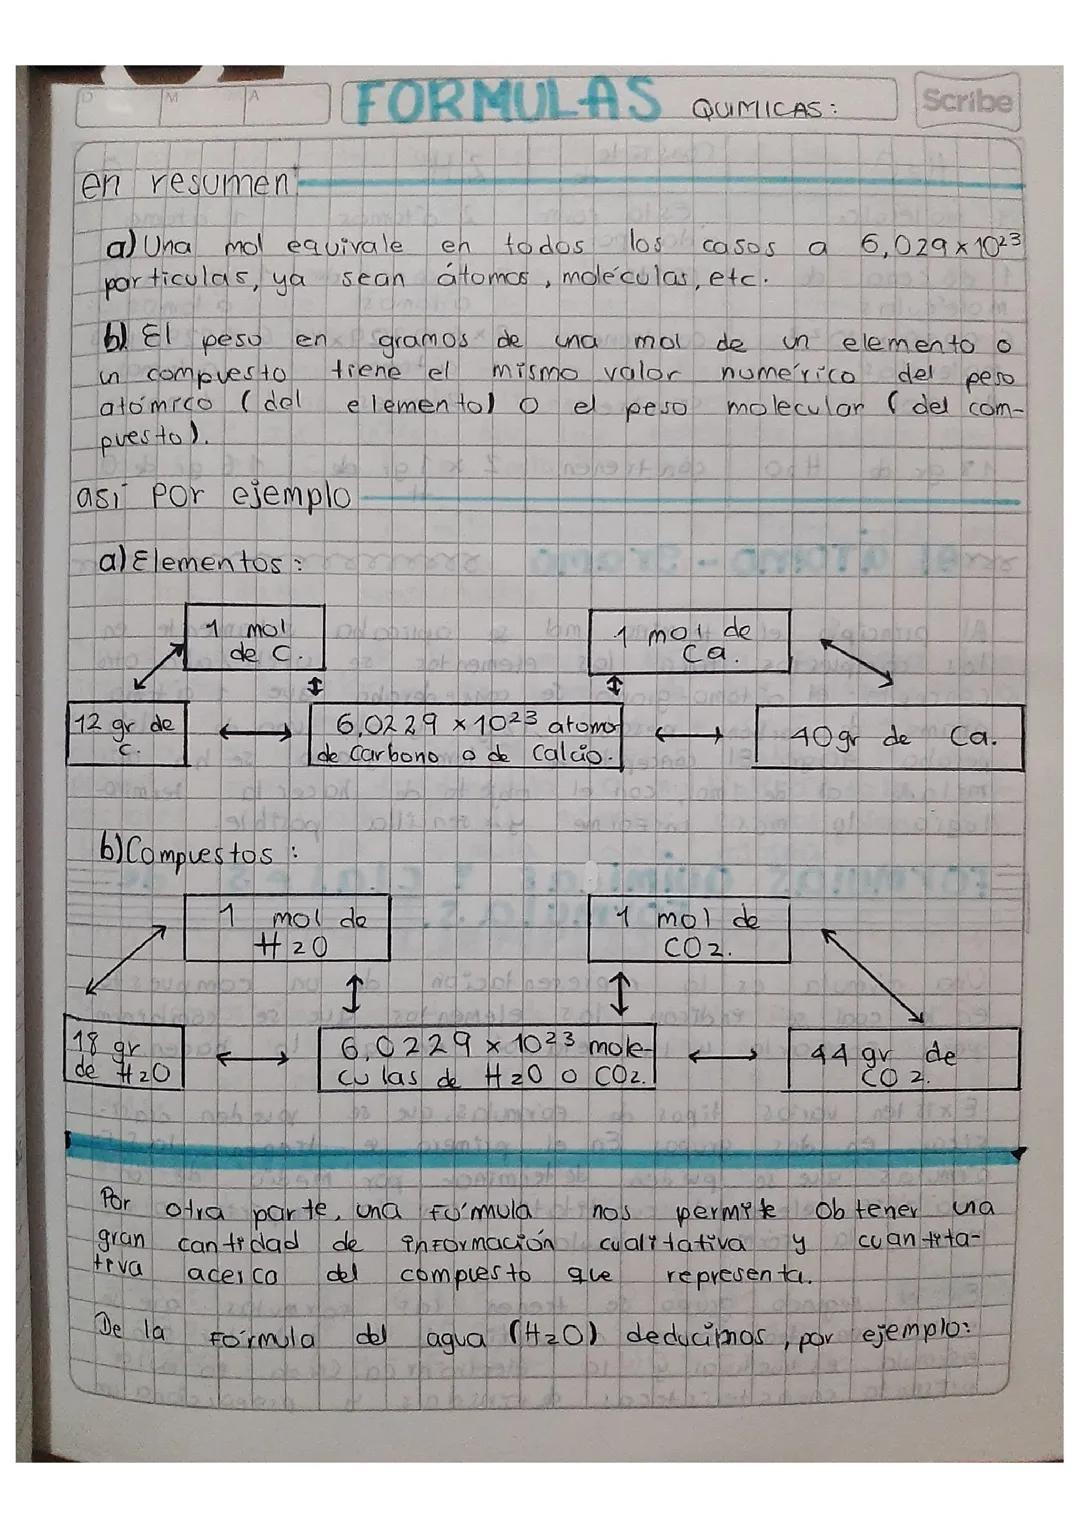 D M A
FORMULAS QUIMICAS:
Scribe
en resumen:
a) Una mol equivale en todos los casos a 6,029 x 10²³
particulas, ya sean átomos, moléculas, etc.
b) El peso en gramos de una mol de un elemento o
un compuesto tiene el mismo valor numérico del peso
atómico (del elemento) o el peso molecular (del com-
puesto).
así por ejemplo
a) Elementos:
1 mol
de C.
1 mol de
Ca.
12 gr de
C.
6,0229 x 10²³ atomo
de Carbono o de Calcio.
40gr de Ca.
b) Compuestos:
1 mol de
H2O
1 mol de
CO2.
18 gr
de H2O
6,0229 x 10²³ mole-
culas de H2O o CO2.
44 gr de
CO2.
Por otra parte, una fórmula nos permite obtener una
gran cantidad de información cualitativa y cuantita-
tiva acerca del compuesto que representa.
De la fórmula del agua (H2O) deducimos, por ejemplo: